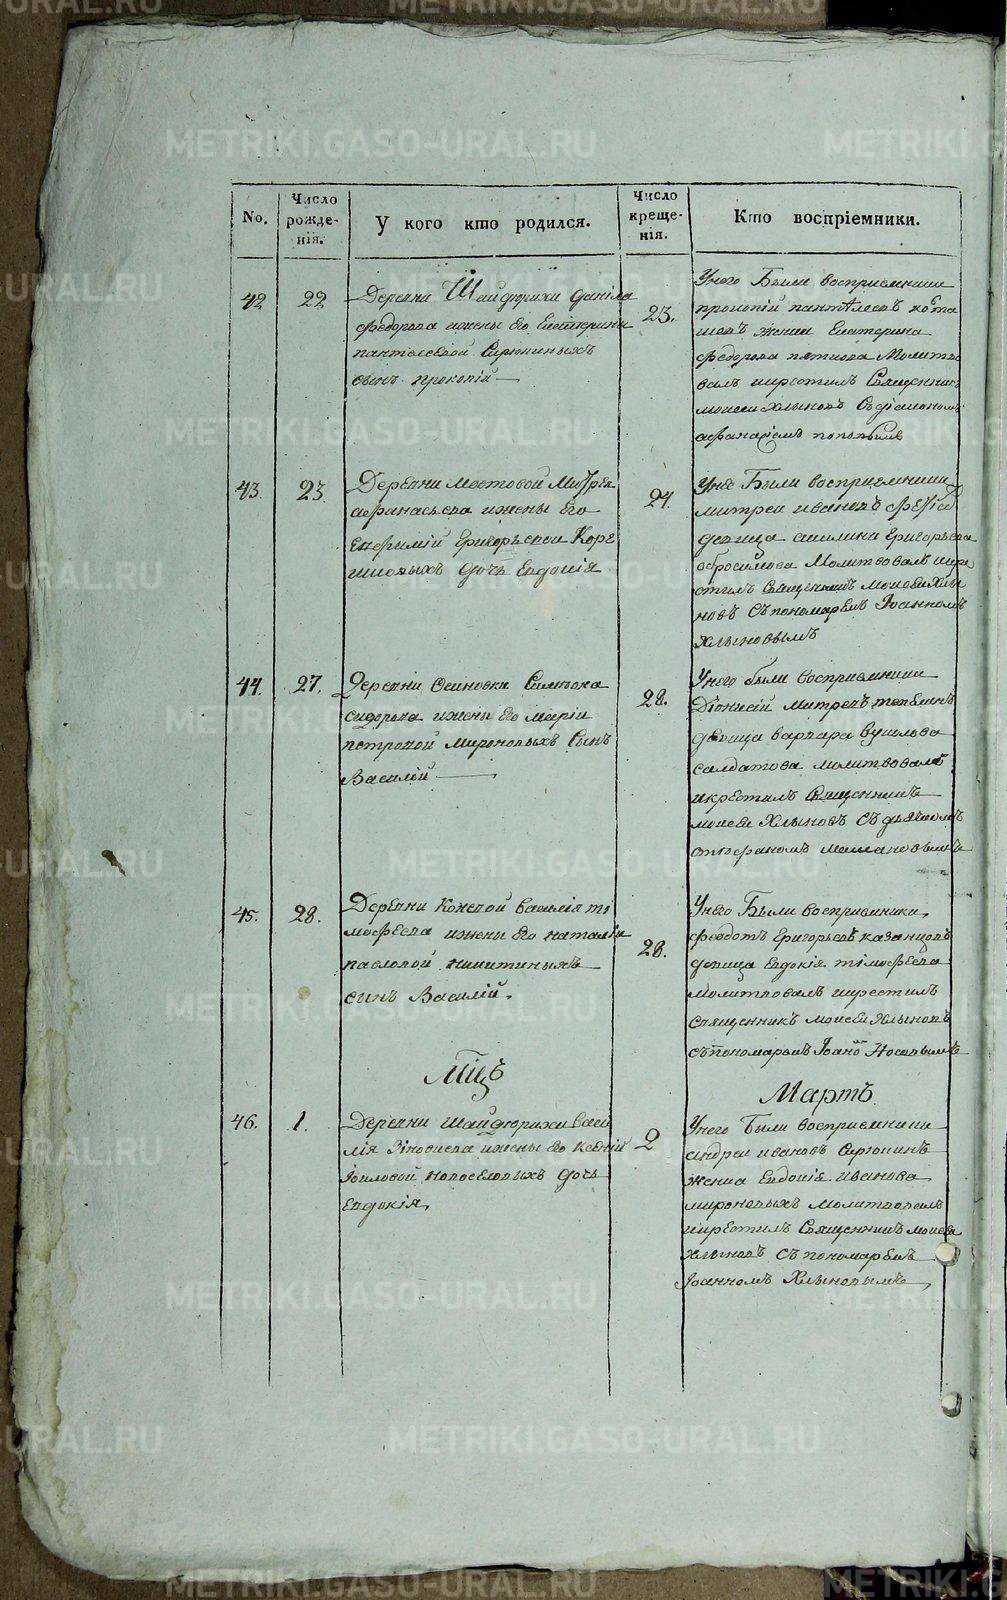 METRIKI.GASO-URAL.RU
No.
Число рожде-нія.
У кого кто родился.
Число креще-нія.
Кто воспріемники.
42
22
Деревни Шайдюрихи Даніла
Федорова ижены Его Екатерины
пантелевой Сирюкиныхъ
сынъ прокопій
23.
Унего Были восприемники
прокопій пантѣлеевъ
жена Екатерина
федорова Молитво
валъ икрестилъ Священникъ
моисеи Хлыновъ
43.
23
Деревни Мостовой Митрея
афанасьева ижены Его
Ефимій Григорьевой
дочь Евдокія
24.
Унего Были восприемники
митреи ивановъ
девица акилина Григорьева
Молитвовалъ икре
стилъ Священникъ моисеи Хлы
новъ Съ пономаремъ Іоанномъ
Хлыновымъ
44.
27.
Деревни Осиновки Симиона
сидорова ижены Его маріи
петровой мироновыхъ Сынъ
Василій
28.
Унего были восприемники
Діонисій митреевъ
девица варвара
салдатова молитвовалъ
икрестилъ Священникъ
моисеи Хлыновъ Съ дьякономъ
45.
28.
Деревни Коневой василія ти
мофеева ижены Его наталіи
павловой никитиныхъ
сынъ Василій.
28.
Унего Были восприемники
федотъ Григорьевъ казанцовъ
девица Евдокія тімофеева
молитвовалъ икрестилъ
священникъ моисеи Хлыновъ
съ пономаремъ Іоанномъ Носовымъ
Мцъ
Мартъ
46.
1.
Деревни Шайдюрихи васи
лія Зіновиева ижены Его Ксеніи
новоселовыхъ дочь
Евдокія
2
Унего Были восприемники
андреи ивановъ Сирюкинъ
женка Евдокія иванова
мироновыхъ молитвовалъ
икрестилъ Священникъ моисеи
Хлыновъ Съ пономаремъ
Іоанномъ Хлыновымъ